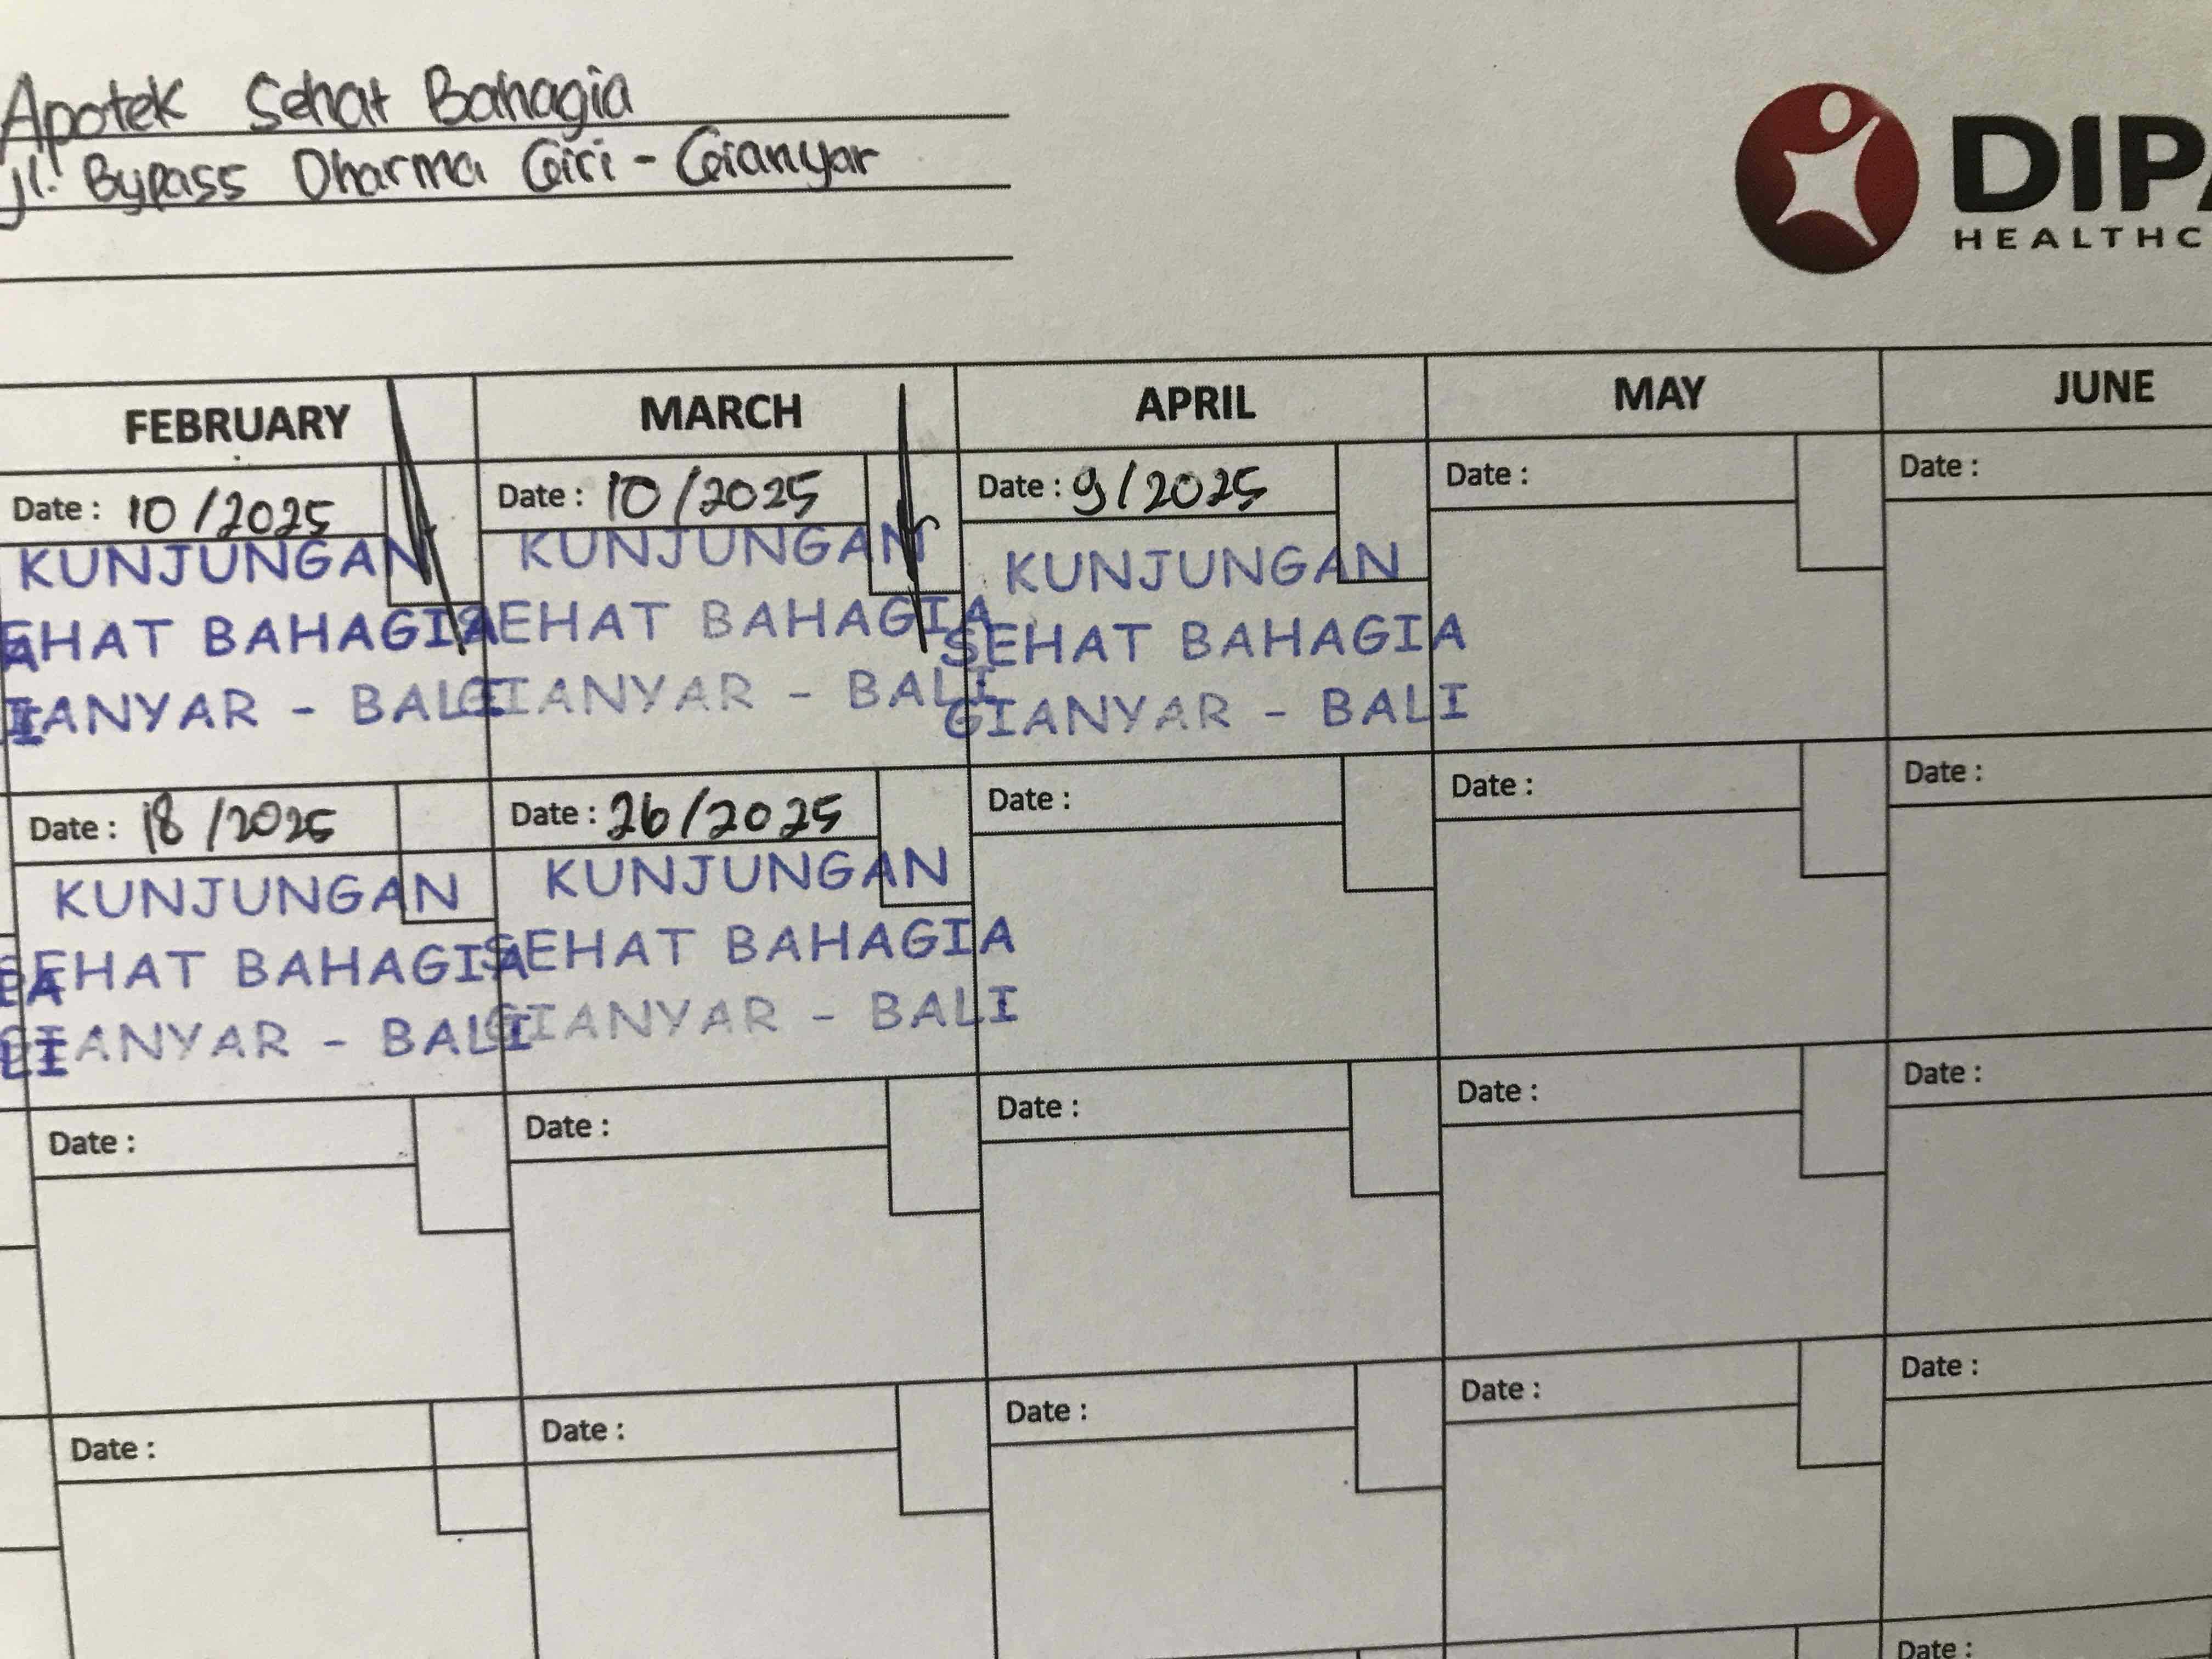 Apotek Sehat Bahagia
jl. Bypass Dharma Giri - Gianyar
DIPA
HEALTHC
FEBRUARY MARCH APRIL MAY JUNE
Date : 10/2025 Date : 10/2025 Date : 9/2025 Date : Date :
KUNJUNGAN KUNJUNGAN KUNJUNGAN
SEHAT BAHAGIA SEHAT BAHAGIA SEHAT BAHAGIA
GIANYAR - BALI GIANYAR - BALI GIANYAR - BALI
Date : 18/2025 Date : 26/2025 Date : Date : Date :
KUNJUNGAN KUNJUNGAN
SEHAT BAHAGIA SEHAT BAHAGIA
GIANYAR - BALI GIANYAR - BALI
Date : Date : Date : Date : Date :
Date : Date : Date : Date : Date :
Date :